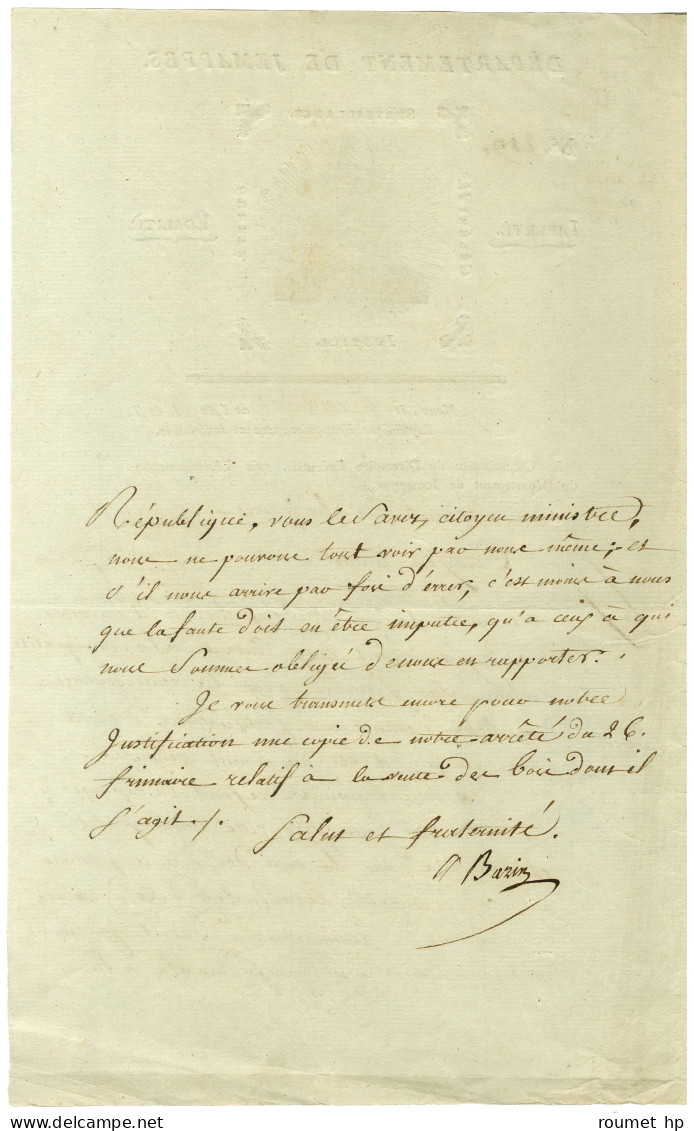 DÉPARTEMENT DE JEMAPPES.
SURVEILLANCE.
N.° 210.
LIBERTÉ.
ÉGALITÉ.
JUSTICE.
République, vous le Savez, citoyen ministre,
nous ne pouvons tout voir par nous même; et
s'il nous arrive par fois d'érrer, c'est moins à nous
que la faute doit en être imputée, qu'a ceux à qui
nous Sommes obligés de nous en rapporter.
Je vous transmets encore pour notre
Justification une copie de notre arrêté du 26.
frimaire relatif à la vente des bois dont il
s'agit ./.
Salut et fraternité.
Bazin
roumet hp